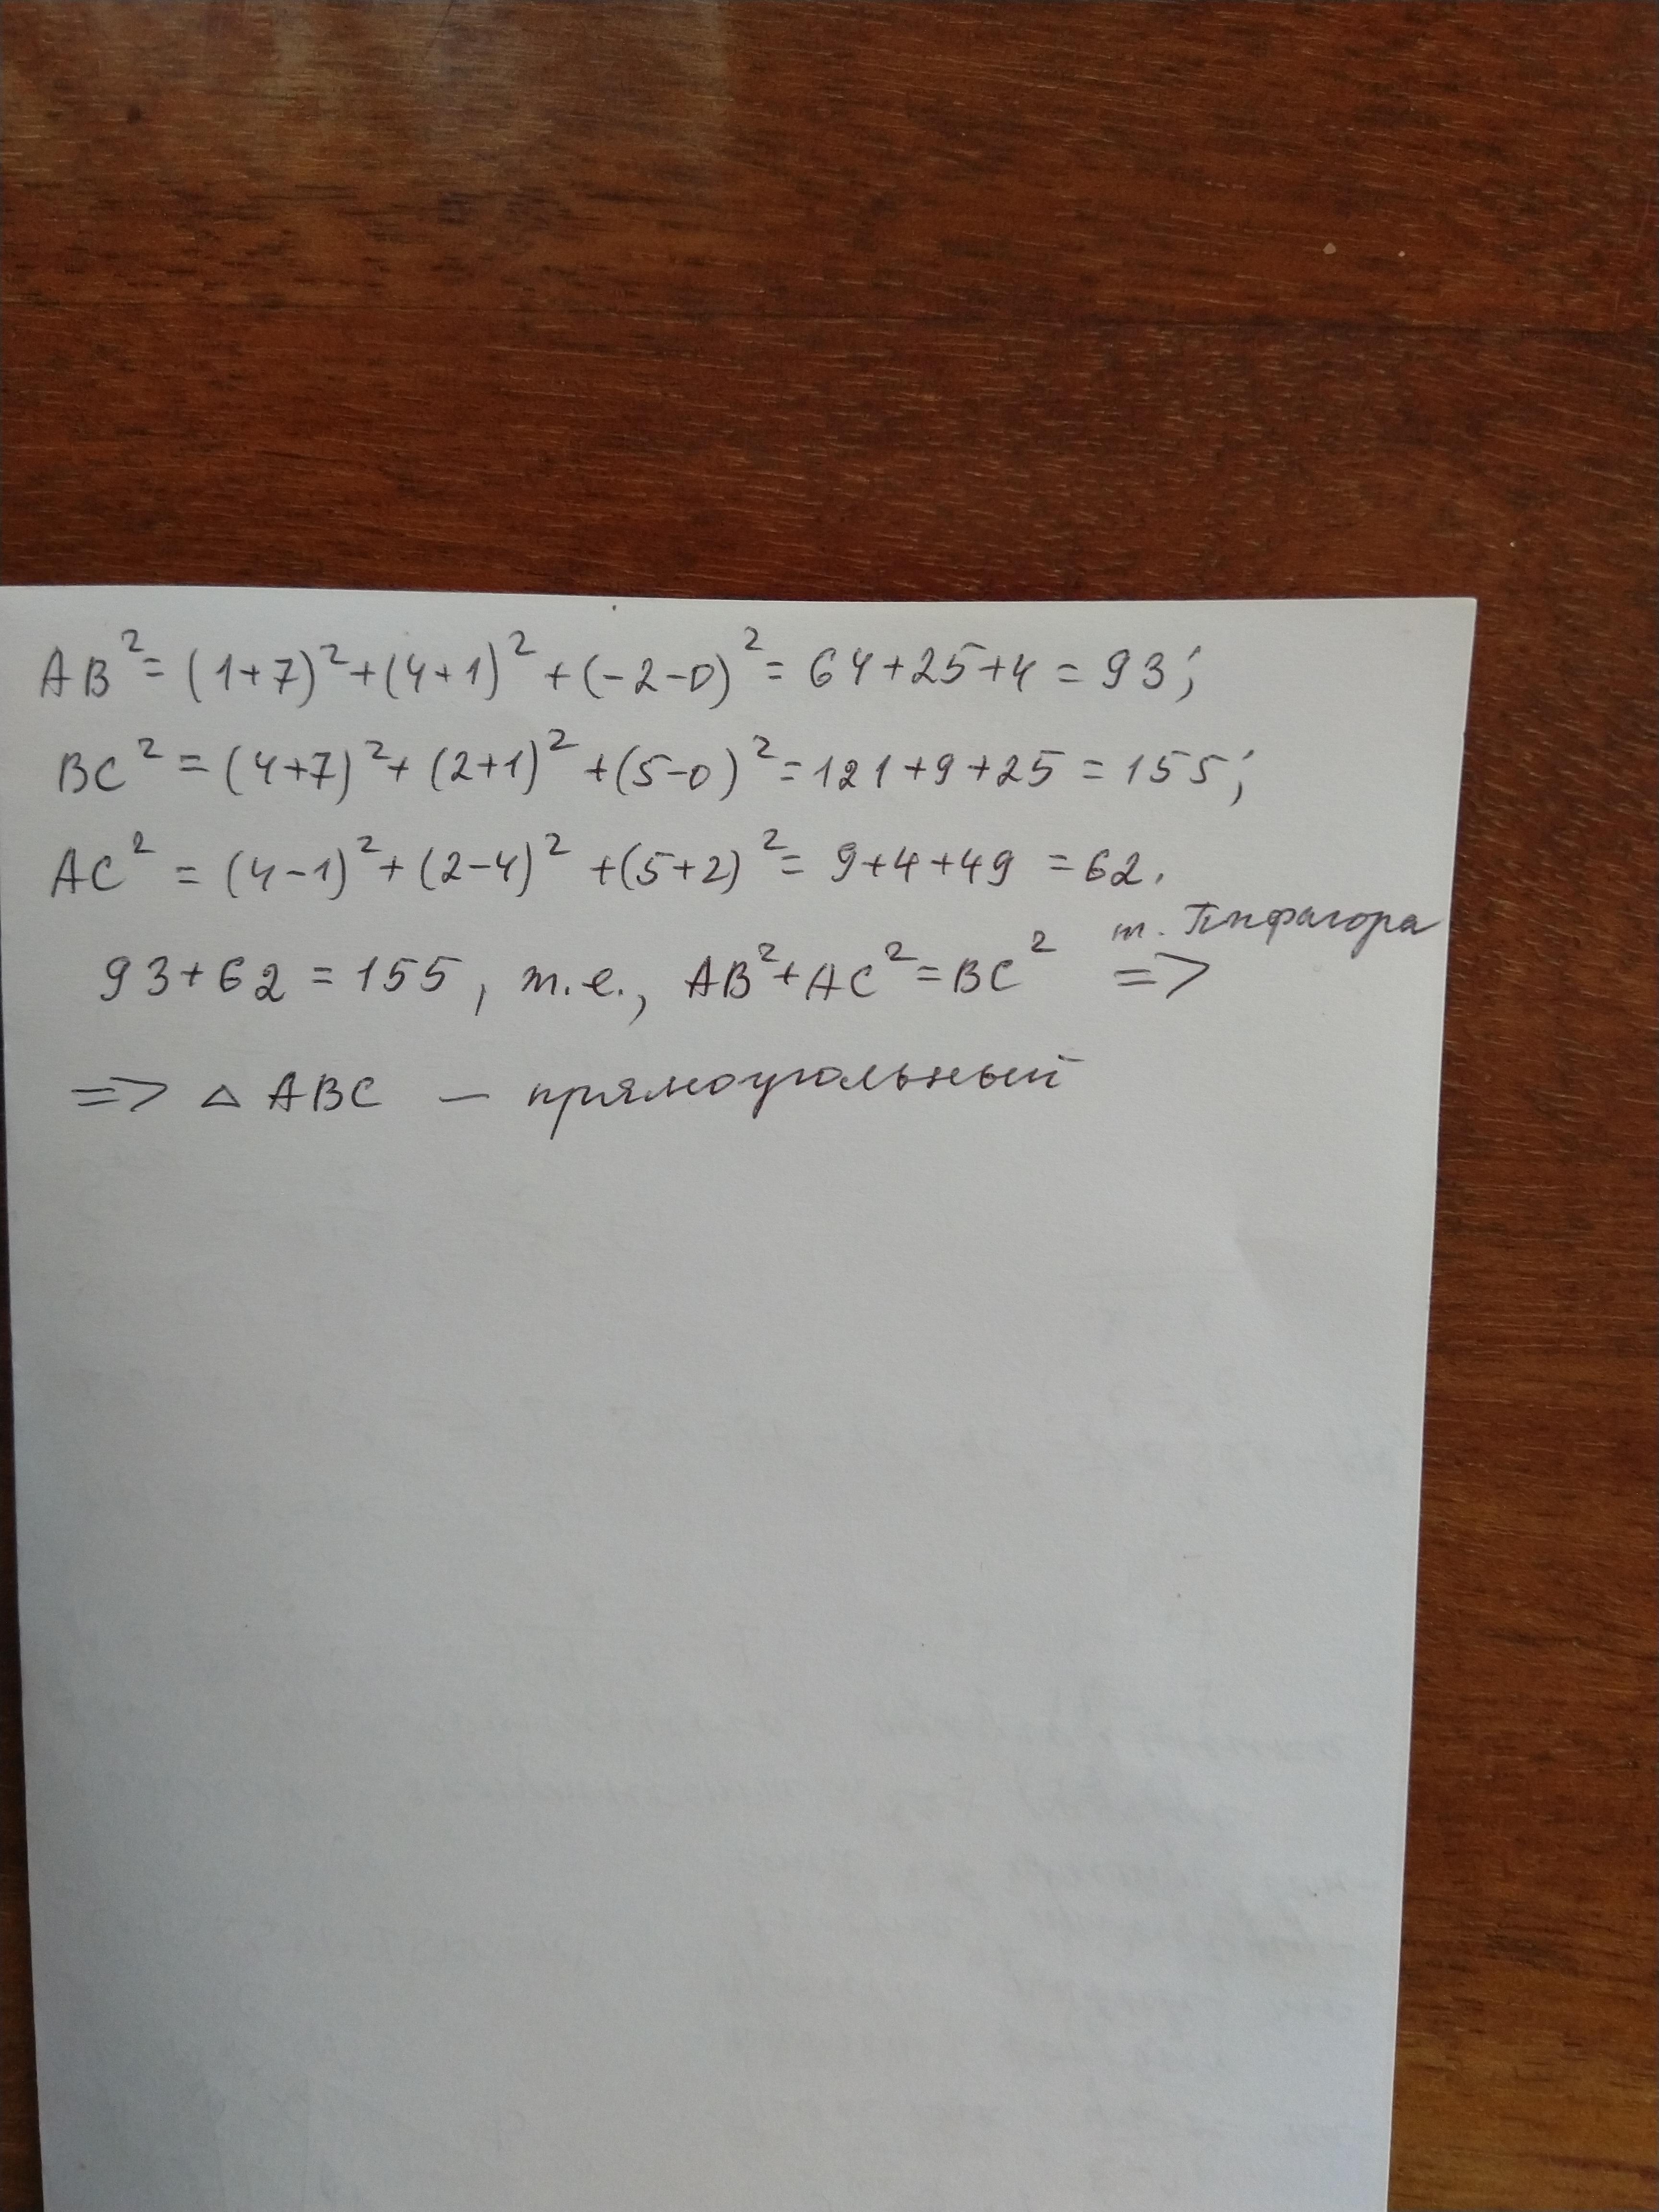 AB² = (1+7)² + (4+1)² + (-2-0)² = 64+25+4 = 93;
BC² = (4+7)² + (2+1)² + (5-0)² = 121+9+25 = 155;
AC² = (4-1)² + (2-4)² + (5+2)² = 9+4+49 = 62.
т. Пифагора
93+62 = 155, т.е., AB²+AC² = BC² =>
=> △ ABC — прямоугольный